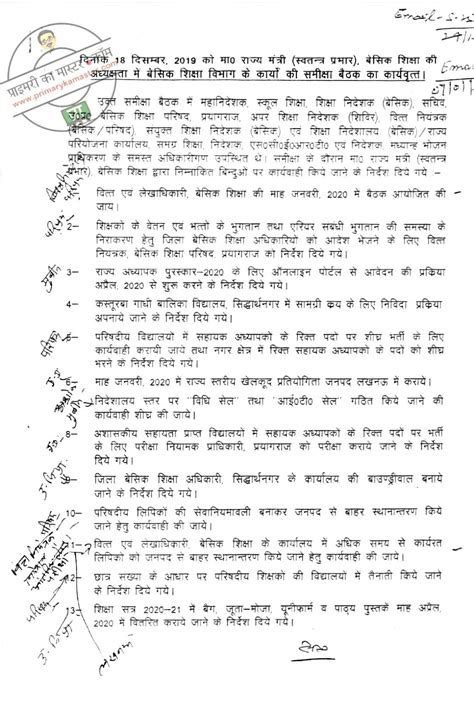 Email-
24/1
दिनांक 18 दिसम्बर, 2019 को मा0 राज्य मंत्री (स्वतन्त्र प्रभार), बेसिक शिक्षा की
अध्यक्षता में बेसिक शिक्षा विभाग के कार्यो की समीक्षा बैठक का कार्यवृत्त।
प्राइमरी का मास्टर डॉट कॉम
www.primarykamaster.com
उक्त समीक्षा बैठक में महानिदेशक, स्कूल शिक्षा, शिक्षा निदेशक (बेसिक), सचिव,
उ0प्र0 बेसिक शिक्षा परिषद, प्रयागराज, अपर शिक्षा निदेशक (शिविर), वित्त नियंत्रक
(बेसिक/परिषद), संयुक्त शिक्षा निदेशक (बेसिक) एवं शिक्षा निदेशालय (बेसिक)/राज्य
परियोजना कार्यालय, समग्र शिक्षा, निदेशक, एस0सी0ई0आर0टी0 एवं निदेशक, मध्यान्ह भोजन
प्राधिकरण के समस्त अधिकारीगण उपस्थित थे। समीक्षा के दौरान मा0 राज्य मंत्री (स्वतन्त्र
प्रभार), बेसिक शिक्षा द्वारा निम्नांकित बिन्दुओं पर कार्यवाही किये जाने के निर्देश दिये गये –
वित्त एवं लेखाधिकारी, बेसिक शिक्षा की माह जनवरी, 2020 में बैठक आयोजित की
जाय।
2– शिक्षकों के वेतन एवं भत्तो के भुगतान तथा एरियर संबंधी भुगतान की समस्या के
निराकरण हेतु जिला बेसिक शिक्षा अधिकारियों को आदेश भेजने के लिए वित्त
नियंत्रक, बेसिक शिक्षा परिषद प्रयागराज को निर्देश दिये गये।
3– राज्य अध्यापक पुरस्कार–2020 के लिए ऑनलाइन पोर्टल से आवेदन की प्रक्रिया
अप्रैल, 2020 से शुरू करने के निर्देश दिये गये।
4– कस्तूरबा गांधी बालिका विद्यालय, सिद्धार्थनगर में सामग्री क्रय के लिए निविदा प्रक्रिया
अपनाये जाने के निर्देश दिये गये।
5– परिषदीय विद्यालयों में सहायक अध्यापकों के रिक्त पदों पर शीघ्र भर्ती के लिए
कार्यवाही करायी जाये तथा नगर क्षेत्र में रिक्त सहायक अध्यापकों के पदों को शीघ्र
भरने के निर्देश दिये गये।
6– माह जनवरी, 2020 में राज्य स्तरीय खेलकूद प्रतियोगिता जनपद लखनऊ में कराये।
निदेशालय स्तर पर "विधि सेल" तथा "आई0टी0 सेल" गठित किये जाने की
कार्यवाही शीघ्र की जाये।
8– अशासकीय सहायता प्राप्त विद्यालयों में सहायक अध्यापकों के रिक्त पदों पर भर्ती
के लिए परीक्षा नियामक प्राधिकारी, प्रयागराज को परीक्षा कराये जाने के निर्देश
दिये गये।
जिला बेसिक शिक्षा अधिकारी, सिद्धार्थनगर के कार्यालय की बाउण्ड्रीवाल बनाये
जाने के निर्देश दिये गये।
10– परिषदीय लिपिकों की सेवानियमावली बनाकर जनपद से बाहर स्थानान्तरण किये
जाने हेतु कार्यवाही की जाये।
11– वित्त एवं लेखाधिकारी, बेसिक शिक्षा के कार्यालय में अधिक समय से कार्यरत
लिपिकों को जनपद से बाहर स्थानान्तरण किये जाने हेतु कार्यवाही की जाये।
12– छात्र संख्या के आधार पर परिषदीय शिक्षकों की विद्यालय में तैनाती किये जाने
के निर्देश दिये गये।
13– शिक्षा सत्र 2020–21 में बैग, जूता–मोजा, यूनीफार्म व पाठ्य पुस्तकें माह अप्रैल,
2020 में वितरित कराये जाने के निर्देश दिये गये।